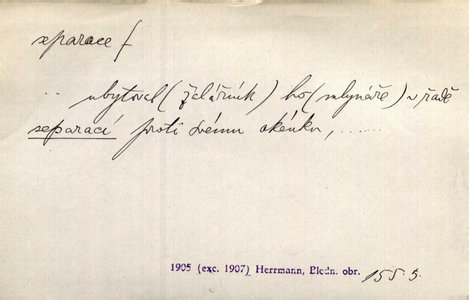 separace f
.. ubytoval (žalářník) ho (mlynáře) v řadě
separací proti svému okénku, ......
1905 (exc. 1907) Herrmann, Bledn. obr. 155.3.